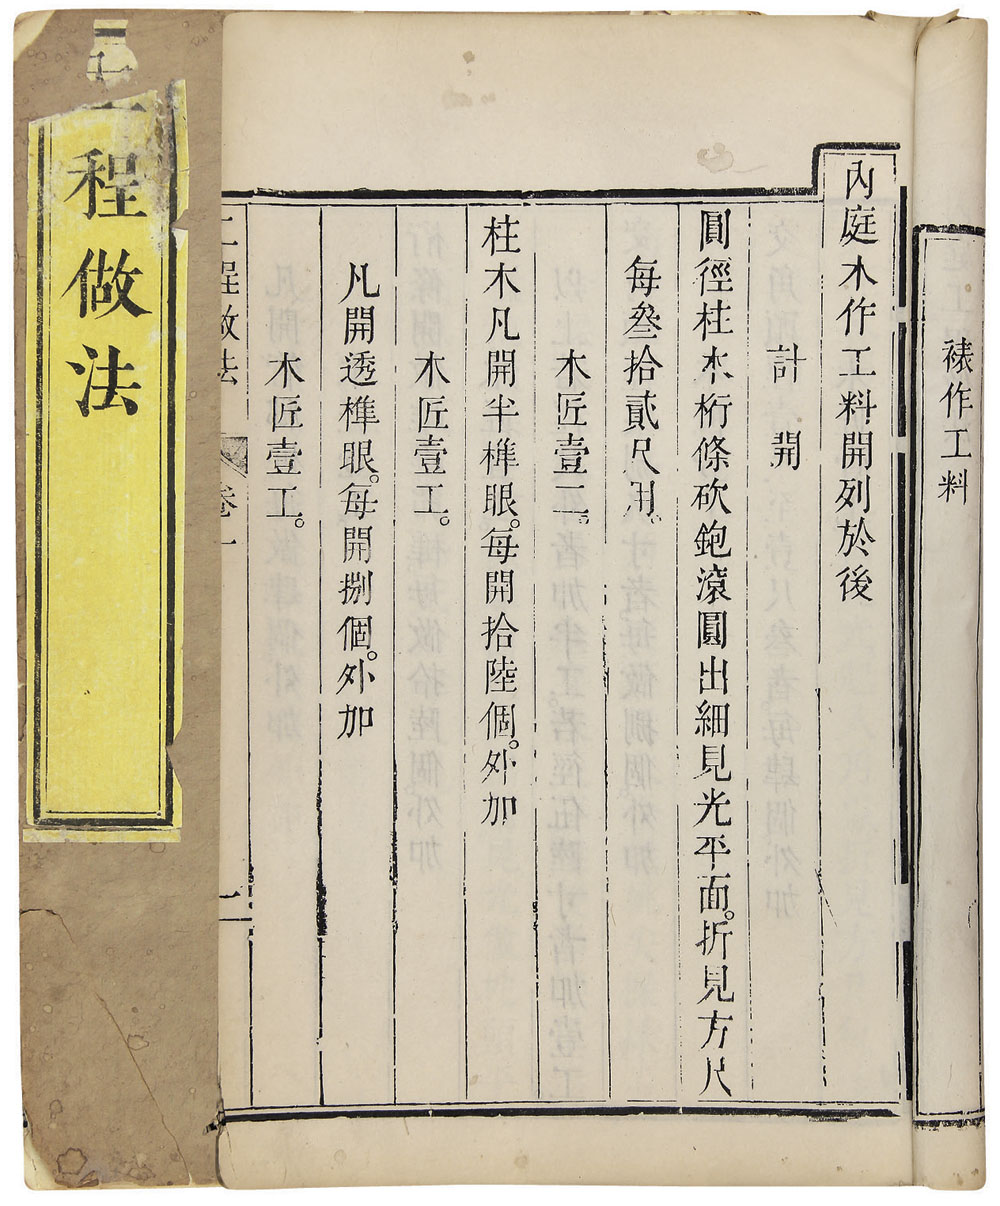 裱作工料
內庭木作工料開列於後
計開
圓徑柱木桁條砍鉋滾圓出細見光平面。折見方尺
每叁拾貳尺用。
木匠壹工。
柱木凡開半榫眼。每開拾陸個。外加
木匠壹工。
凡開透榫眼。每開捌個。外加
木匠壹工。
工程做法 卷一
程做法